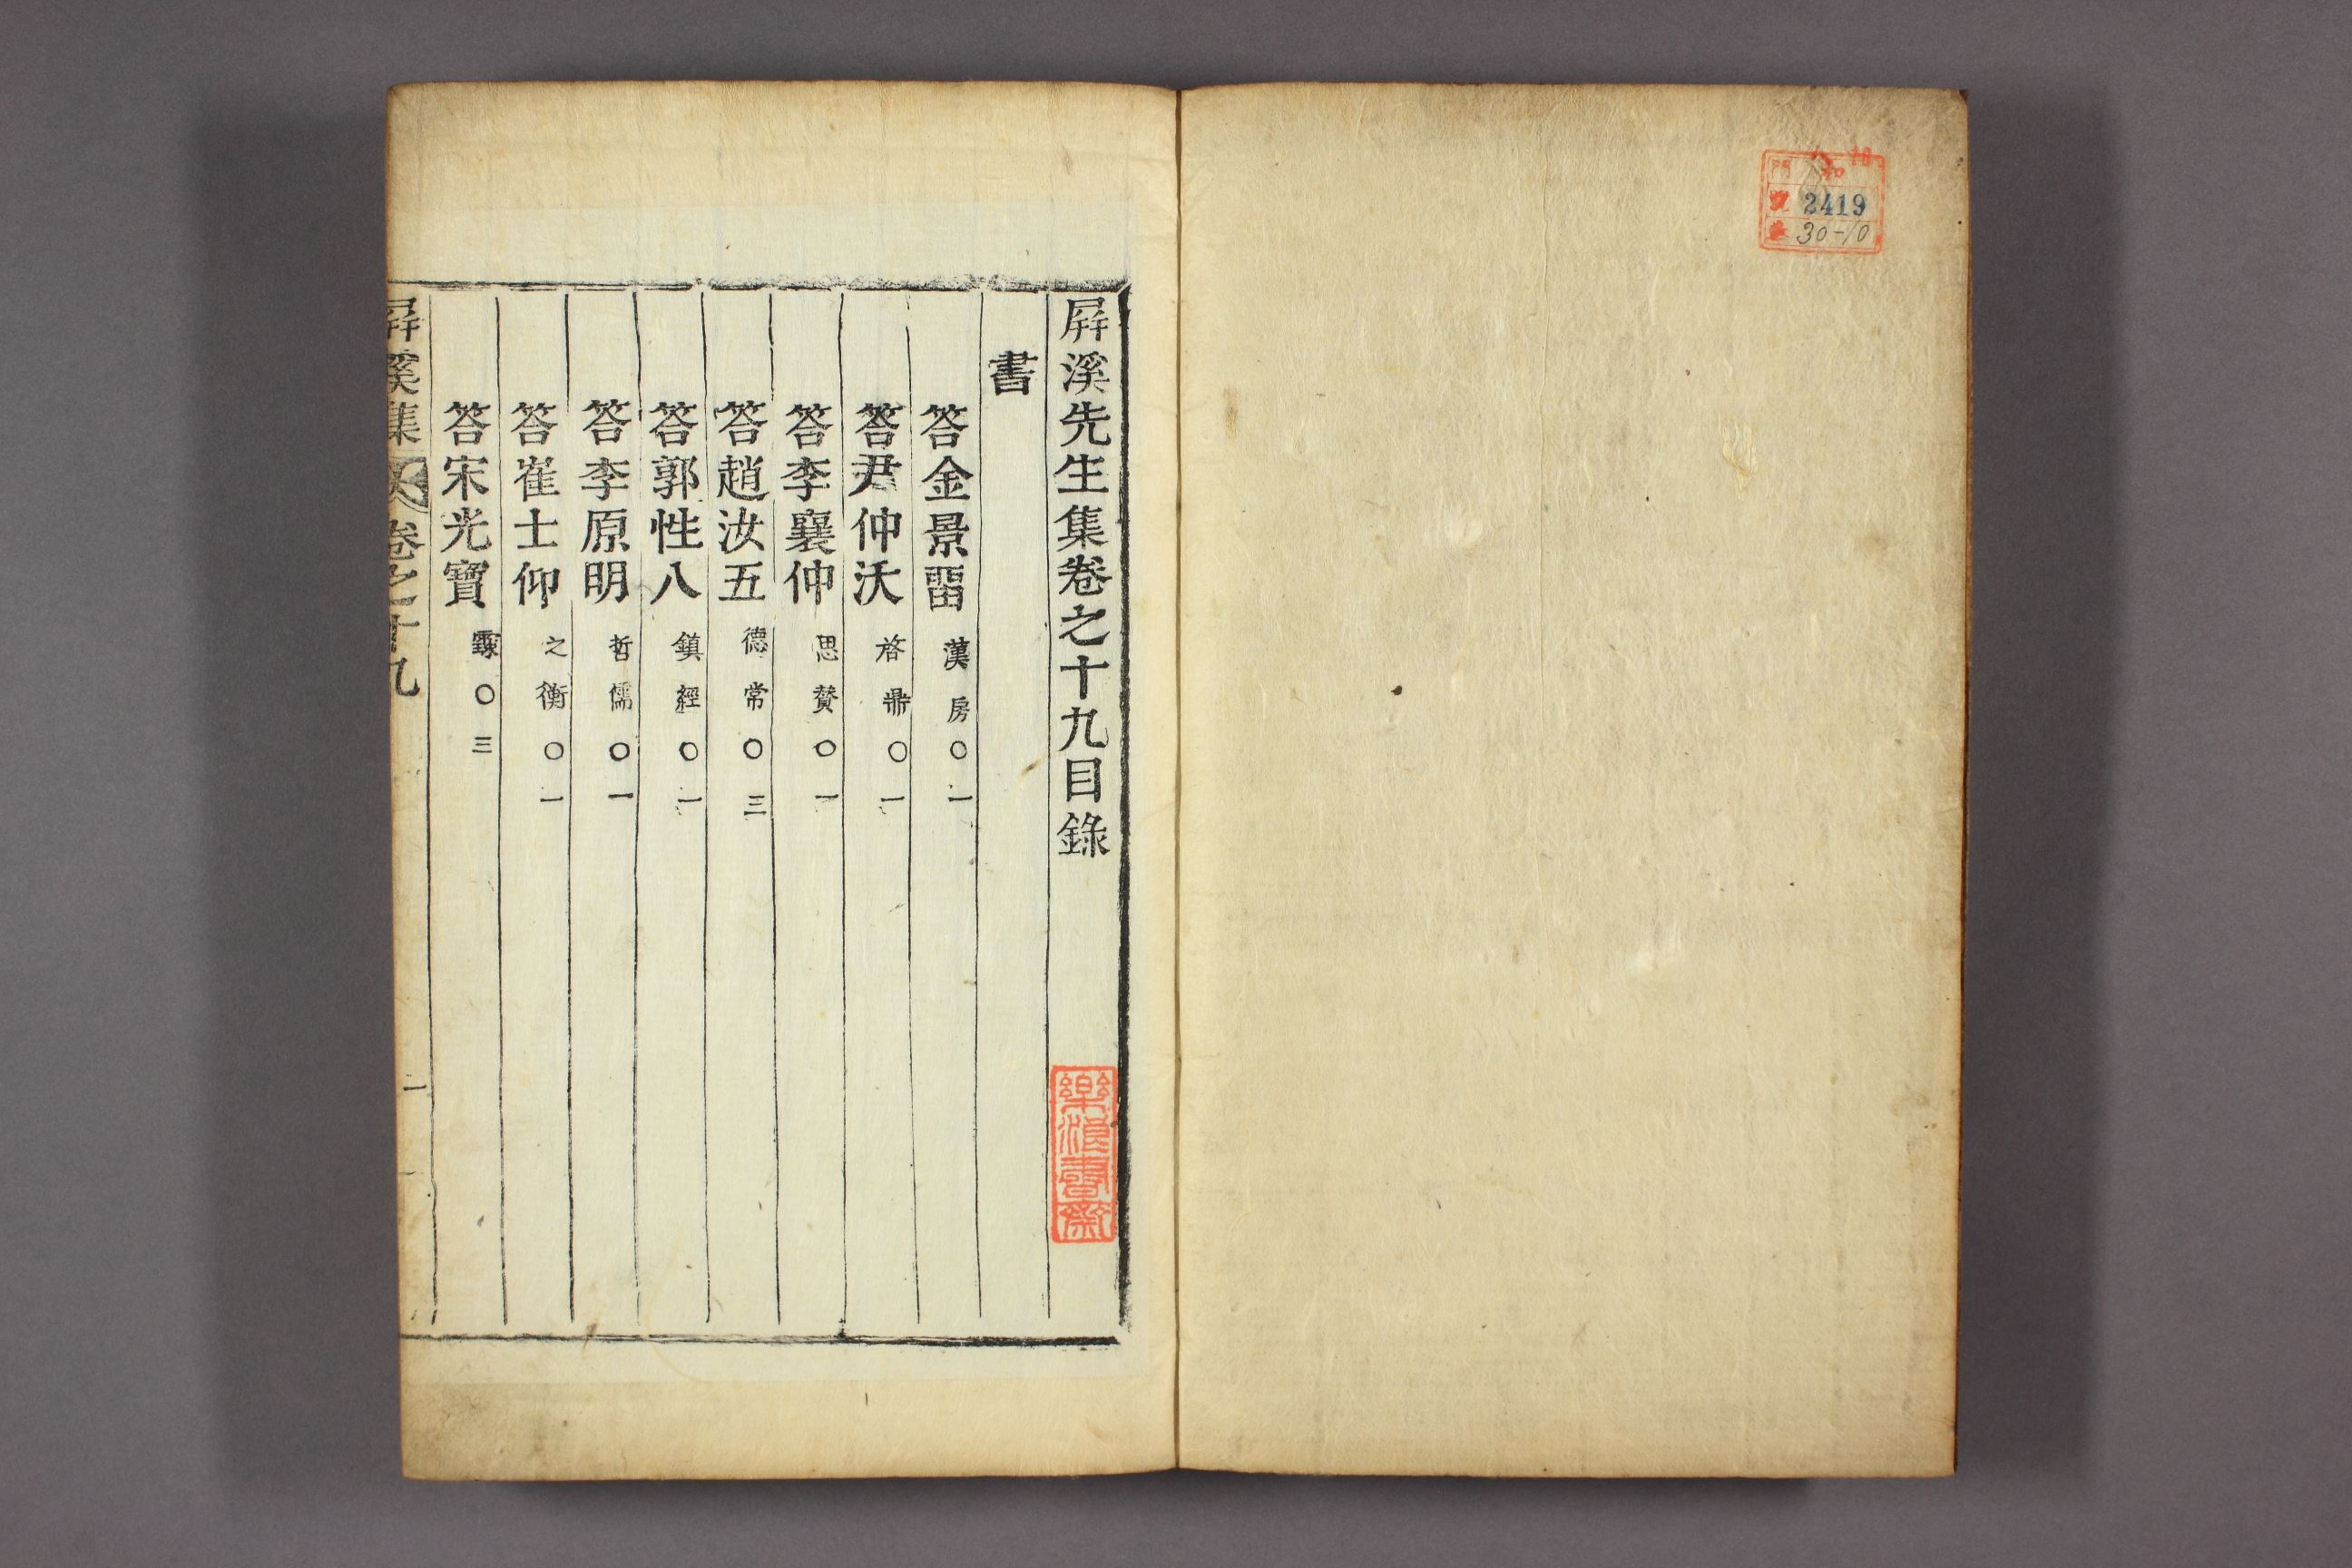 和
門
號 2419
30-10
屛溪先生集卷之十九目錄
書
答金景留 漢房○一
答尹仲沃 啓鼎○一
答李襄仲 思贊○一
答趙汝五 德常○三
答郭性八 鎭經○一
答李原明 哲儒○一
答崔士仰 之衡○一
答宋光寶 ○三
屛溪集 卷之十九